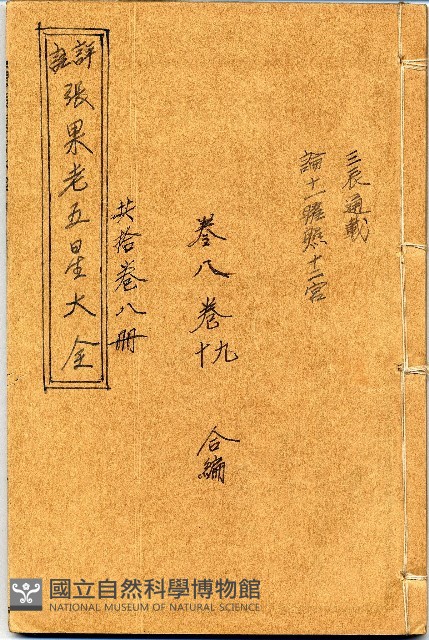 三辰通載
論十一曜照十二宮
卷八卷九
十
合編
共拾卷八冊
詳註
張果老五星大全
國立自然科學博物館
NATIONAL MUSEUM OF NATURAL SCIENCE